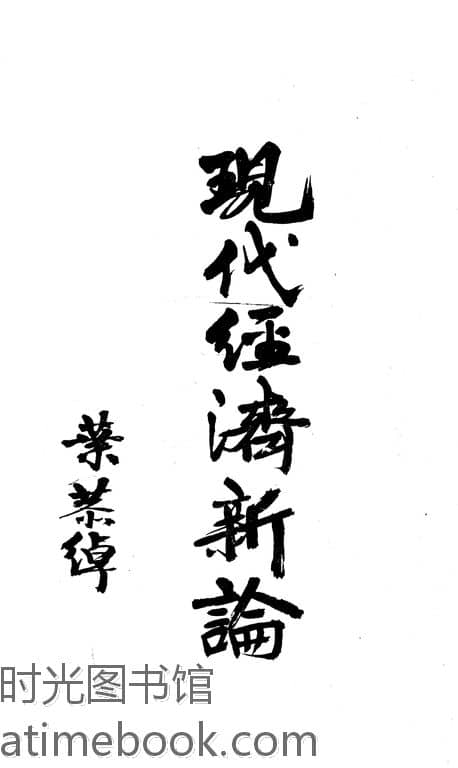 現代經濟新論
葉恭綽
时光图书馆
atimebook.com